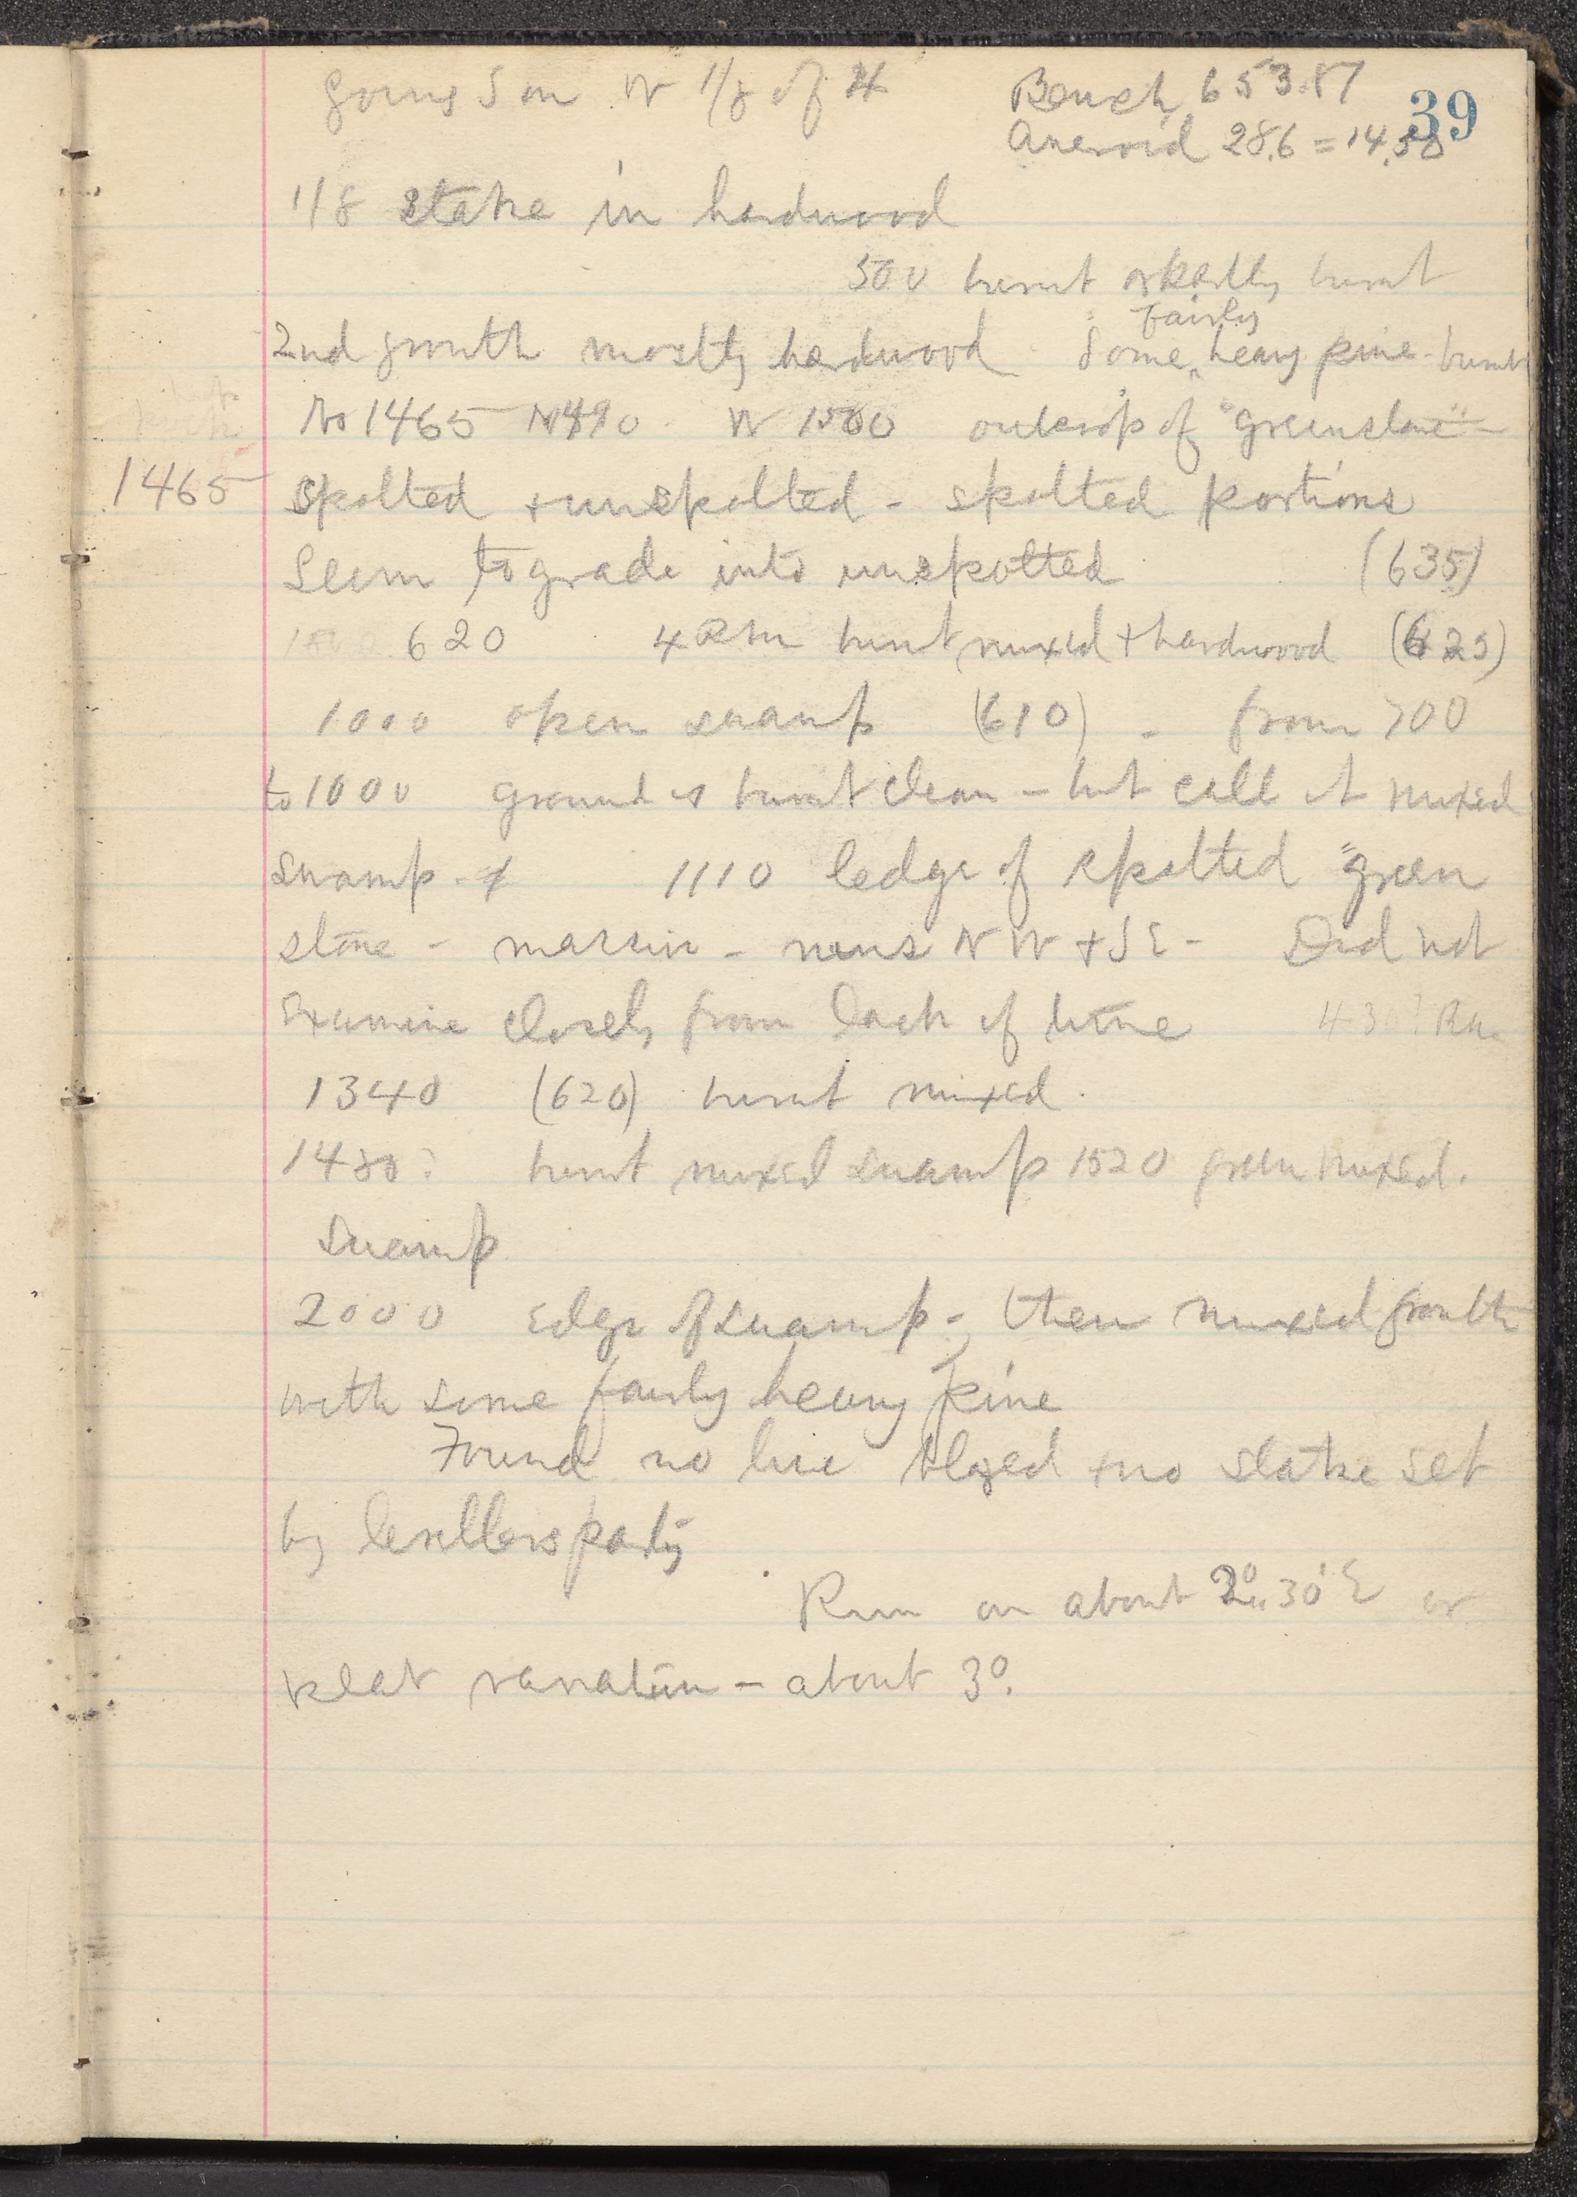 going S on W 1/8 of 4
Bench 653.87
39
Aneroid 28.6 = 14.50
1/8 stake in hardwood
500 burnt or partly burnt
fairly
2nd growth mostly hardwood Some heavy pine - burnt
No 1465 N490 W 1500 outcrop of "greenstone" -
1465
spotted + unspotted - spotted portions
seem to grade into unspotted (635)
620 burnt mixed + hardwood (625)
1000 open swamp (610) - from 700
to 1000 ground is burnt clean - but call it mixed
swamp - 1110 ledge of spotted "green
stone - massive - runs NW + SE - Did not
examine closely from lack of time
1340 (620) burnt mixed.
1480? burnt mixed swamp 1520 green mixed.
swamp
2000 edge of swamp -, then mixed growth
with some fairly heavy pine
Found no line blazed + no stake set
by levellers party
Run on about 2° 30' E or
plat variation - about 3°.